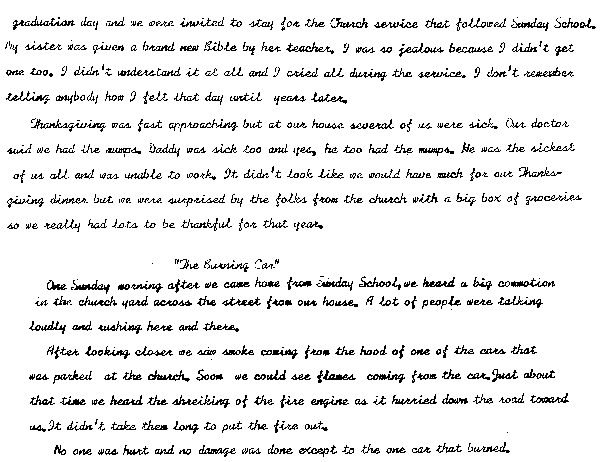 graduation day and we were invited to stay for the Church service that followed Sunday School.
My sister was given a brand new Bible by her teacher. I was so jealous because I didn't get
one too. I didn't understand it at all and I cried all during the service. I don't remember
telling anybody how I felt that day until years later.
Thanksgiving was fast approaching but at our house several of us were sick. Our doctor
said we had the mumps. Daddy was sick too and yes, he too had the mumps. He was the sickest
of us all and was unable to work. It didn't look like we would have much for our Thanks-
giving dinner but we were surprised by the folks from the church with a big box of groceries
so we really had lots to be thankful for that year.
"The Burning Car"
One Sunday morning after we came home from Sunday School, we heard a big commotion
in the church yard across the street from our house. A lot of people were talking
loudly and rushing here and there.
After looking closer we saw smoke coming from the hood of one of the cars that
was parked at the church. Soon we could see flames coming from the car. Just about
that time we heard the shreiking of the fire engine as it hurried down the road toward
us. It didn't take them long to put the fire out.
No one was hurt and no damage was done except to the one car that burned.